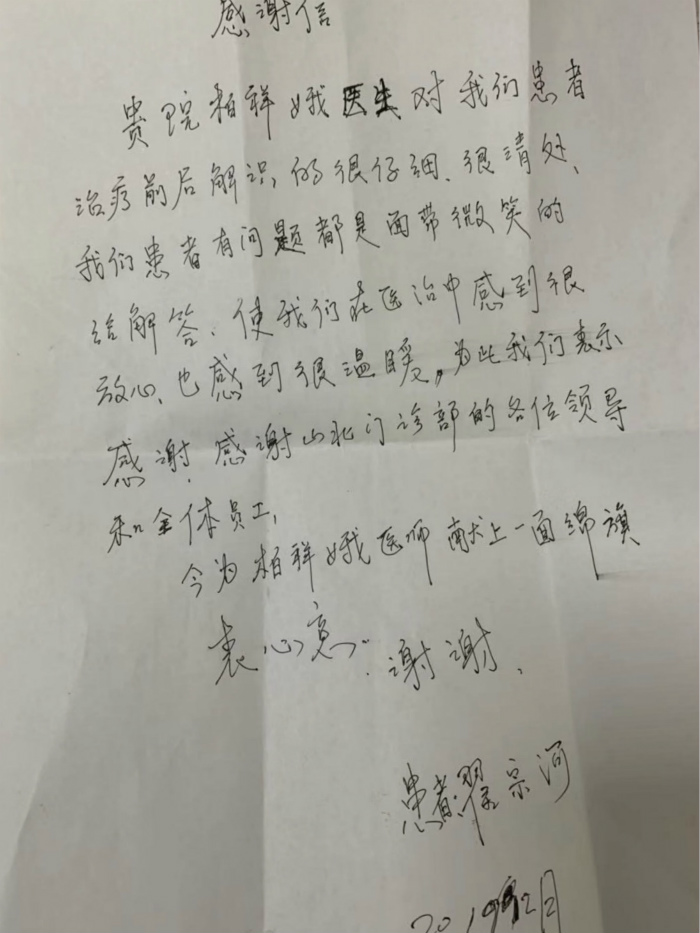 感谢信
贵院柏祥娥医生对我们患者
治疗前后解识的很仔细、很清处、
我们患者有问题都是面带微笑的
给解答、使我们在医治中感到很
放心、也感到很温暖，为此我们表示
感谢、感谢山北门诊部的各位领导
和全体员工，
今为柏祥娥医师献上一面绵旗
表心意. 谢谢、
患者:翟宗河
2019年2月